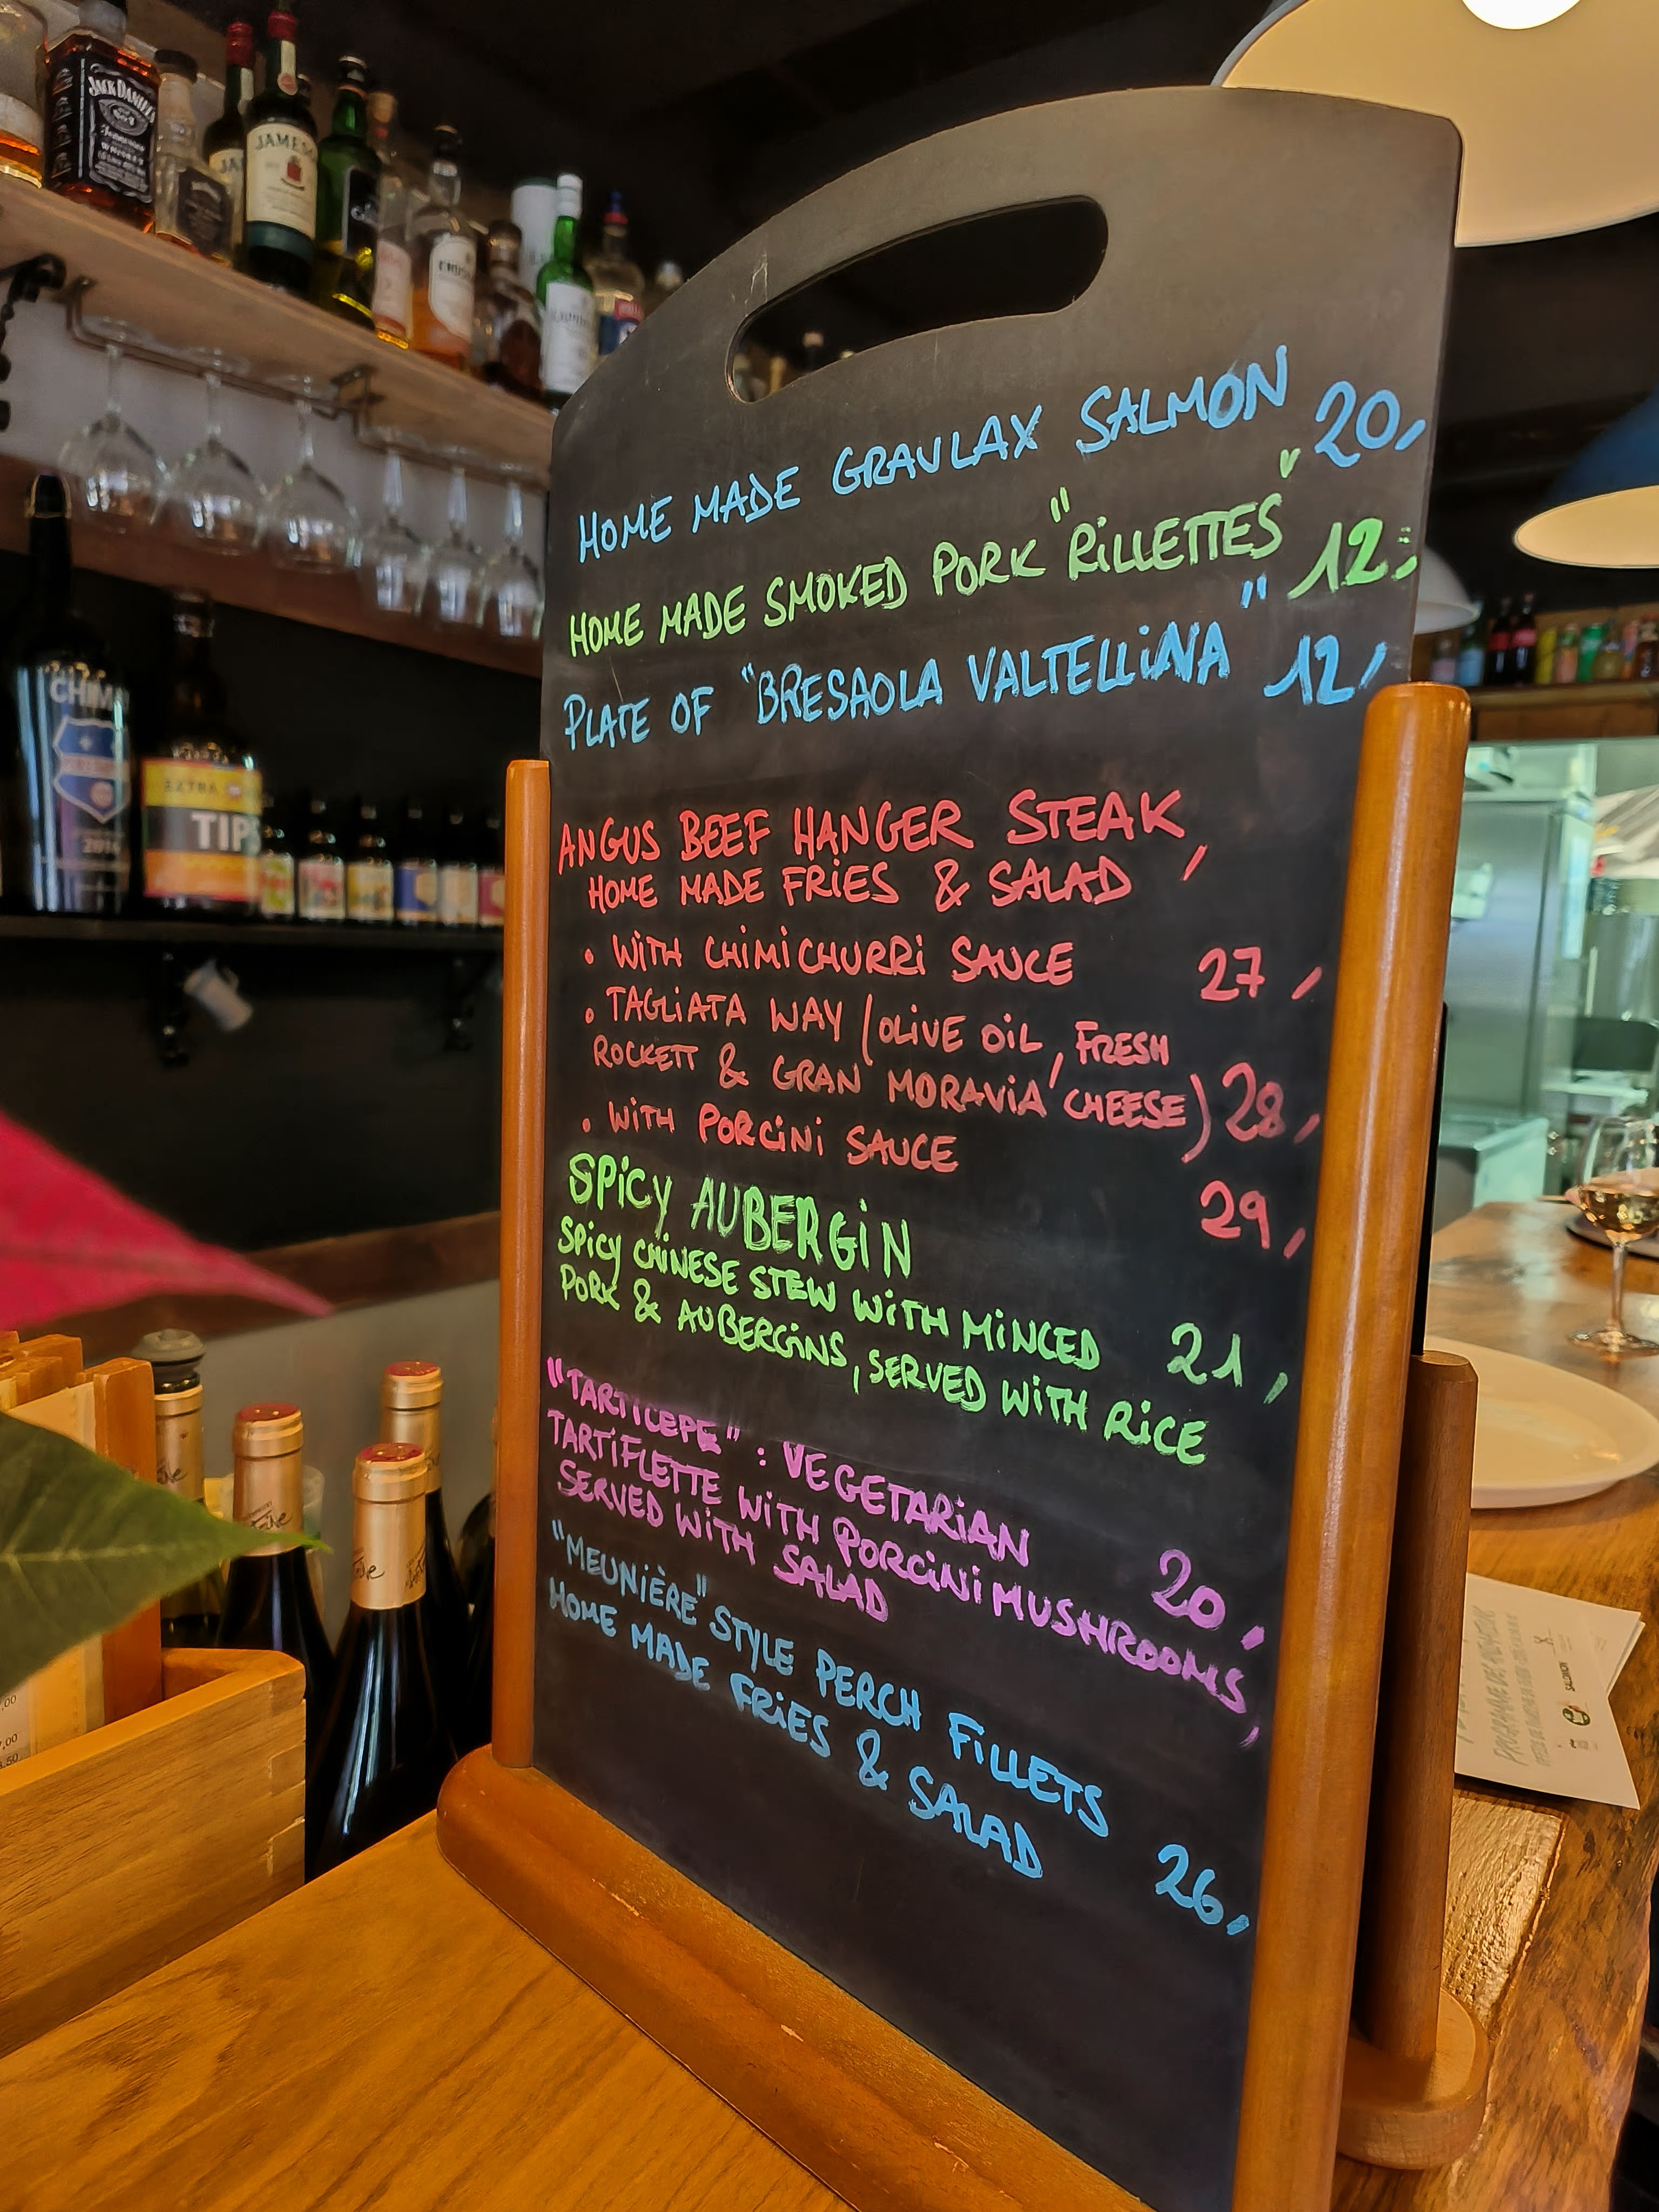 JACK DANIEL'S
JAMES
HOME MADE GRAVLAX SALMON 20,
HOME MADE SMOKED PORK "RiLLETTES" 12,
PLATE OF "BRESAOLA VALTELLiNA" 12,
ANGUS BEEF HANGER STEAK,
HOME MADE FRiES & SALAD
• WiTH CHiMiCHURRi SAUCE 27,
• TAGLiATA WAY (OLiVE OiL, FRESH
ROCKETT & GRAN MORAViA CHEESE) 28,
• WiTH PORCiNi SAUCE 29,
SPiCY AUBERGiN
SPiCY CHiNESE STEW WiTH MiNCED 21,
PORK & AUBERGiNS, SERVED WiTH RiCE
"TARTiCEPE" : VEGETARiAN
TARTiFLETTE WiTH PORCiNi MUSHROOMS, 20,
SERVED WiTH SALAD
"MEUNiÈRE" STYLE PERCH FiLLETS
HOME MADE FRiES & SALAD 26,
CHIM
EXTRA
TIP